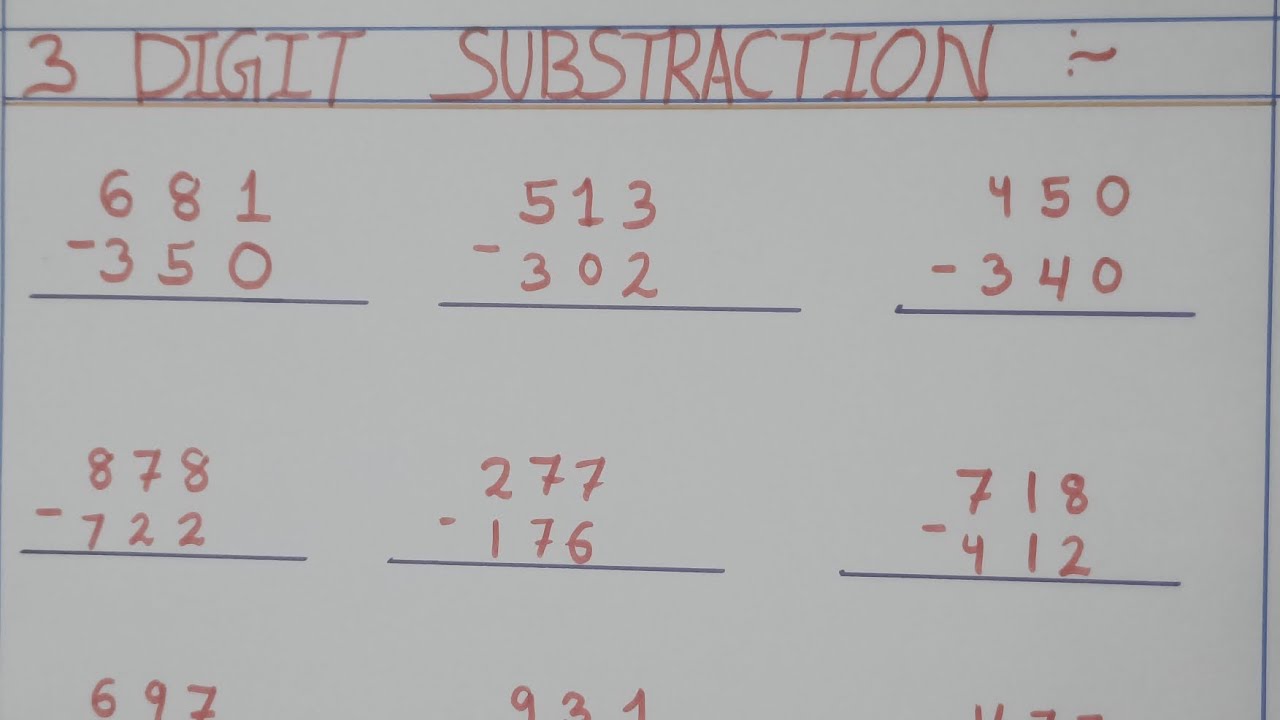 3 DIGIT SUBSTRACTION :~
681 513 450
-350 - 302 - 340
878 277 718
- 722 - 176 - 412
697 931